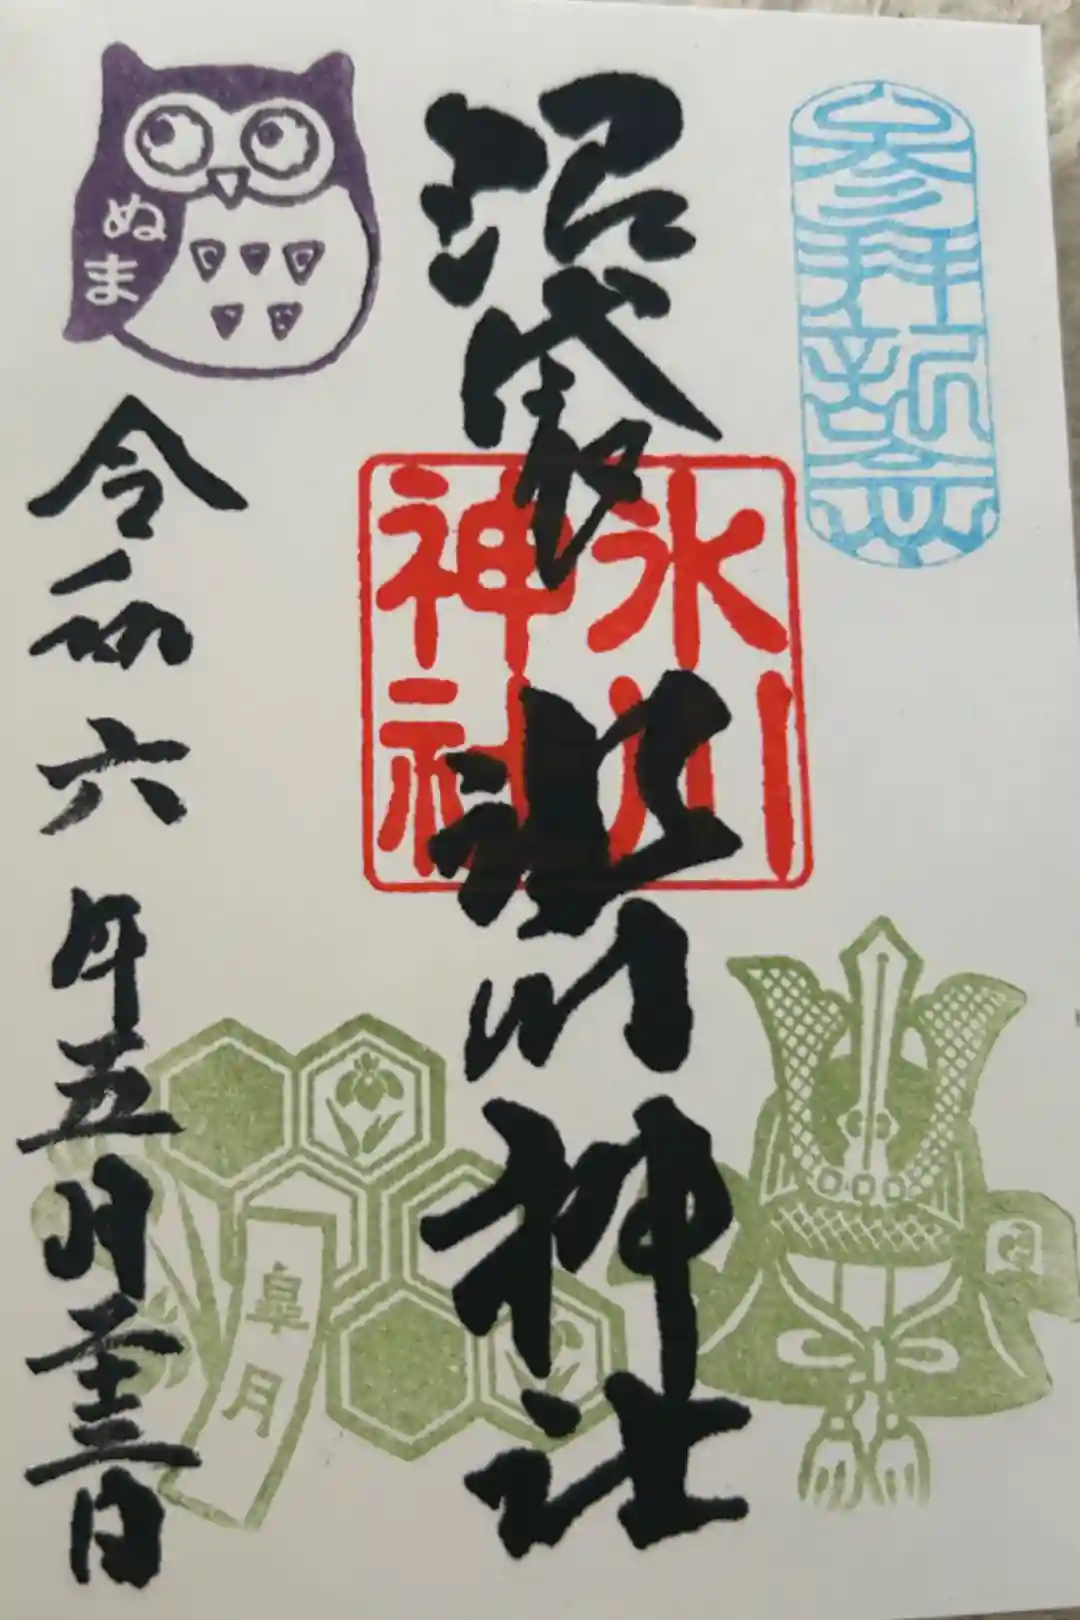 參拝記念
沼袋氷川神社
氷川
神社
ぬま
令和六年五月二十三日
皐月